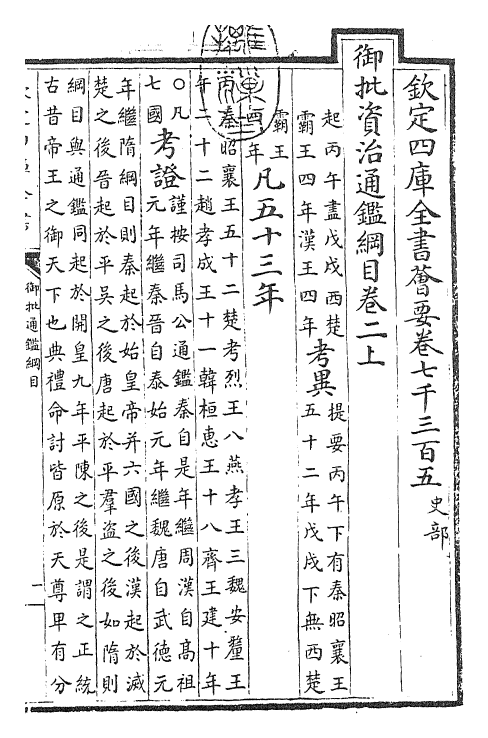 欽定四庫全書薈要卷七千三百五 史部
御批資治通鑑綱目卷二上
起丙午盡戊戌西楚
霸王四年漢王四年
考異
提要丙午下有秦昭襄王
五十二年戊戌下無西楚
霸王
凡五十三年
丙秦昭襄王五十二楚考烈王八燕孝王三魏安釐王
午二十二趙孝成王十一韓桓惠王十八齊王建十年
○凡
七國
考證
謹按司馬公通鑑秦自是年繼周漢自高祖
元年繼秦晉自泰始元年繼魏唐自武德元
年繼隋綱目則秦起於始皇帝并六國之後漢起於滅
楚之後晉起於平吳之後唐起於平羣盜之後如隋則
綱目與通鑑同起於開皇九年平陳之後是謂之正統
古昔帝王之御天下也典禮命討皆原於天尊卑有分
御批通鑑綱目
一